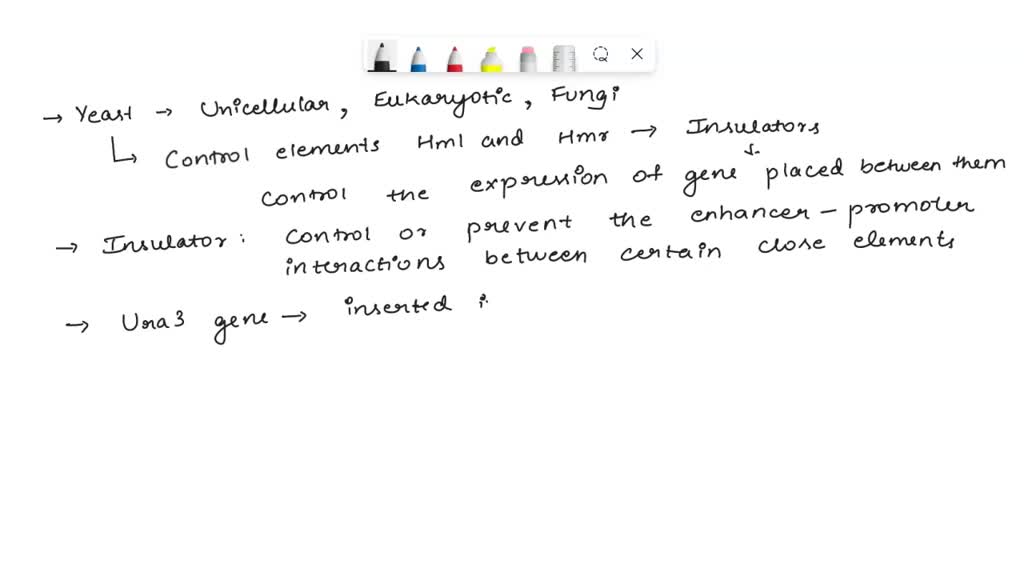 → Yeast → Unicellular, Eukaryotic, Fungi
↳ Control elements Hml and Hmr → Insulators
↓
Control the expression of gene placed between them
→ Insulator: Control or prevent the enhancer - promoter
interactions between certain close elements
→ Ura3 gene → inserted i